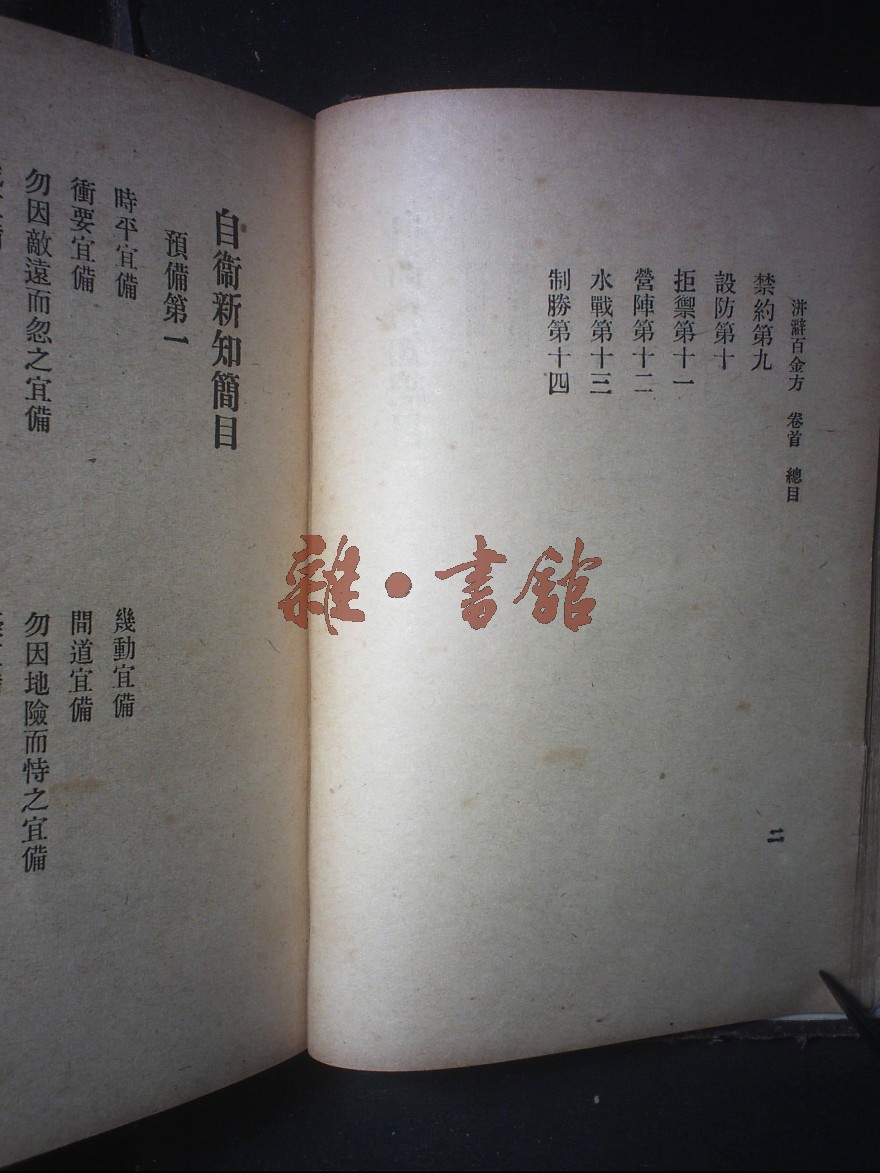 洴澼百金方 卷首 總目
禁約第九
設防第十
拒禦第十一
營陣第十二
水戰第十三
制勝第十四
二
自衞新知簡目
預備第一
時平宜備 幾動宜備
衝要宜備 間道宜備
勿因敵遠而忽之宜備 勿因地險而恃之宜備
雜·書館